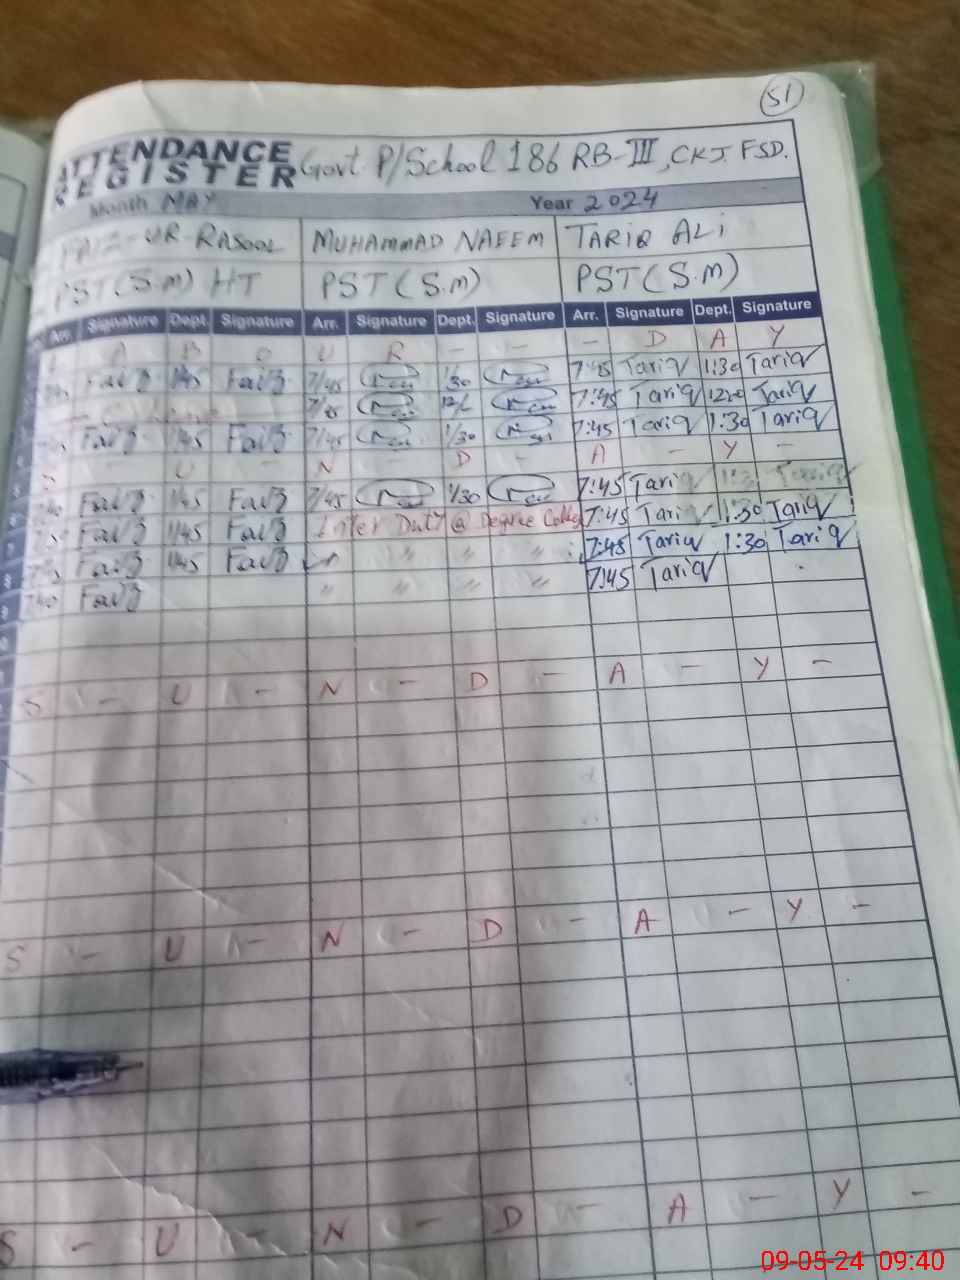 51
ATTENDANCE REGISTER Govt. P/School 186 RB-III, CKJ. FSD.
Month MAY Year 2024
FAIZ-UR-RASOOL MUHAMMAD NAEEM TARIQ ALI
PST(S.M) HT PST(S.M) PST(S.M)
Arr. Signature Dept. Signature Arr. Signature Dept. Signature Arr. Signature Dept. Signature
L A B O U R - - - D A Y
Faiz 1:45 Faiz 7/45 1/30 7:45 Tariq 1:30 Tariq
7/45 7:45 Tariq 1200 Tariq
Faiz 1:45 Faiz 7/45 1/30 7:45 Tariq 1:30 Tariq
S U - N - D - A - Y -
Faiz 1:45 Faiz 7/45 1/30 7:45 Tariq Tariq
Faiz 1:45 Faiz Inter Duty @ Degree College 7:45 Tariq 1:30 Tariq
8 Faiz 1:45 Faiz " " " 7:45 Tariq 1:30 Tariq
9 7:40 Faiz " " " " 7:45 Tariq
S - U - N - D - A - Y -
S - U - N - D - A - Y -
S - U - N - D - A - Y -
09-05-24 09:40